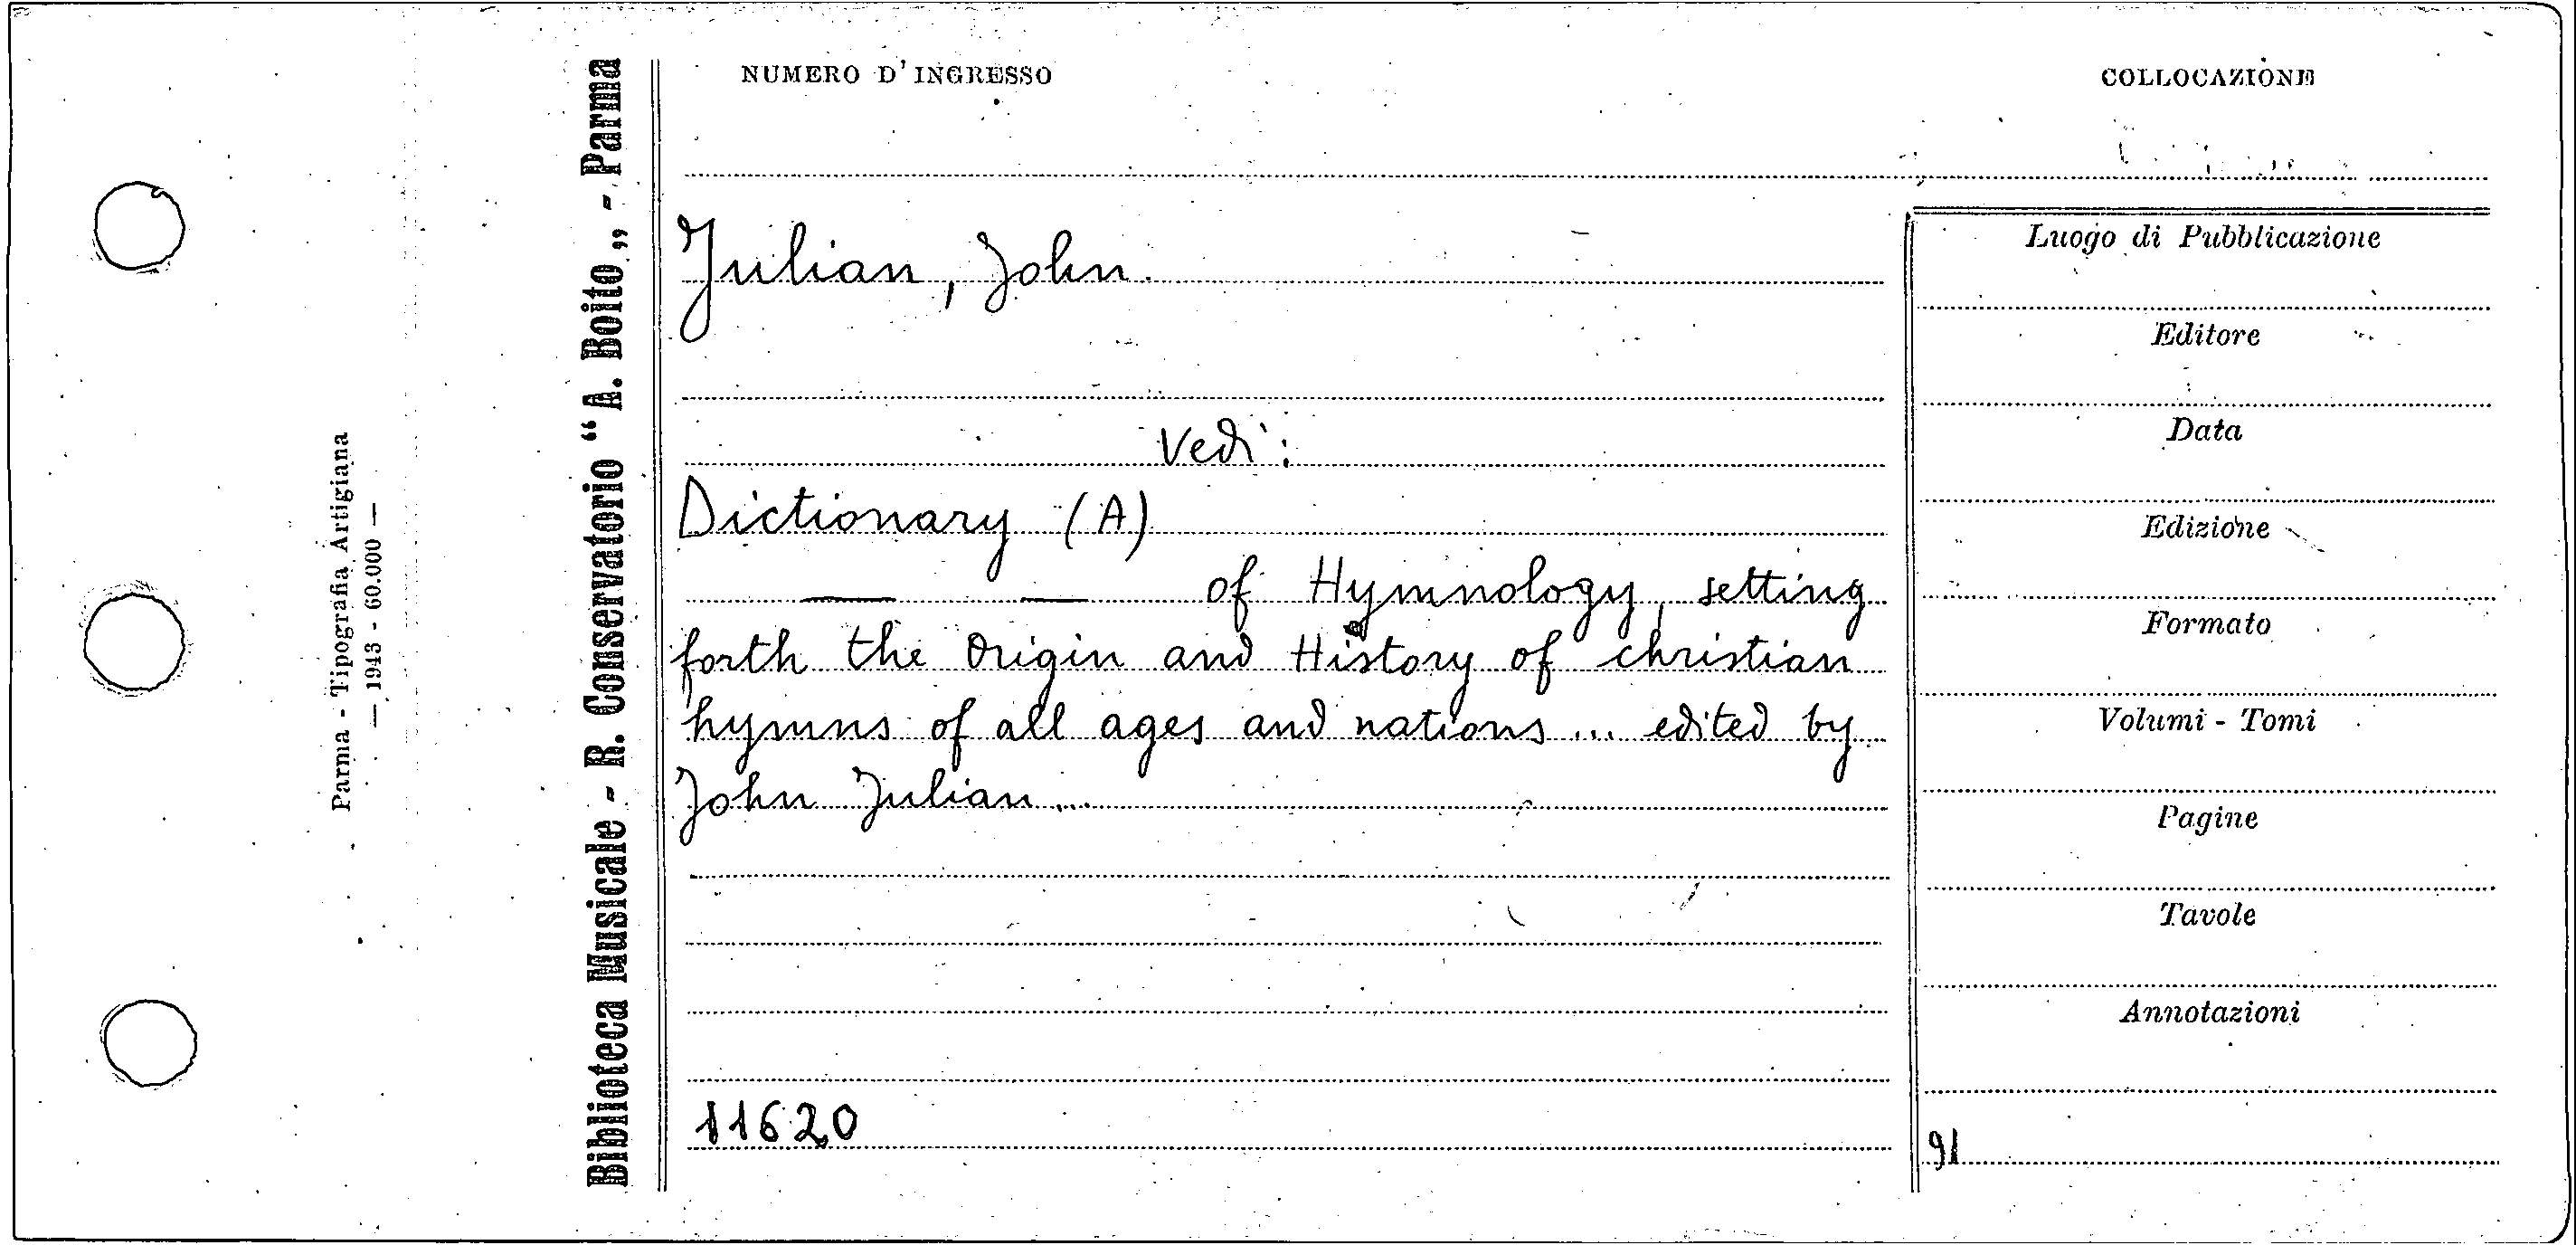 Parma - Tipografia Artigiana
— 1943 - 60.000 —
Biblioteca Musicale - R. Conservatorio "A. Boito„ - Parma
NUMERO D'INGRESSO
COLLOCAZIONE
Julian, John.
Vedi:
Dictionary (A)
— — of Hymnology, setting
forth the Origin and History of christian
hymns of all ages and nations ... edited by
John Julian...
11620
Luogo di Pubblicazione
Editore
Data
Edizione
Formato
Volumi - Tomi
Pagine
Tavole
Annotazioni
91